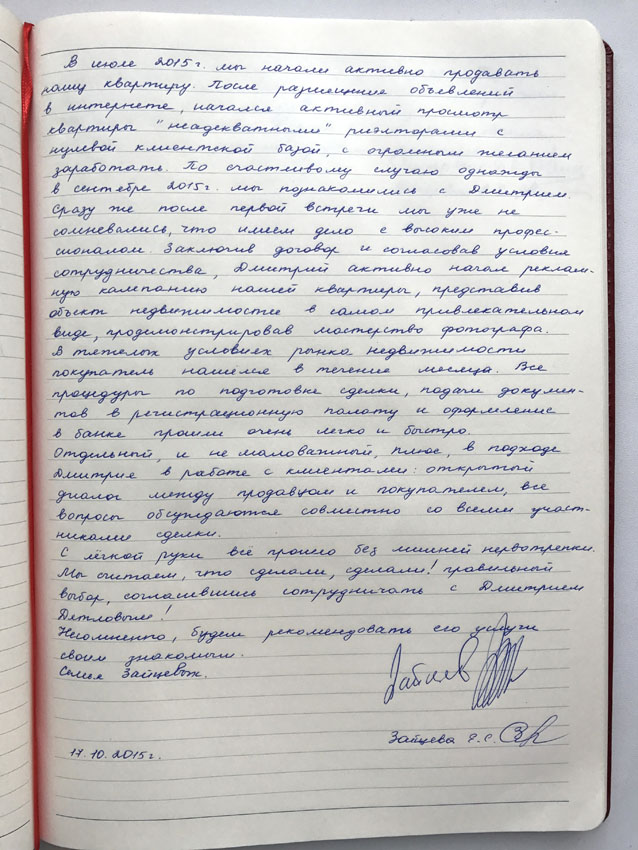 В июле 2015г. мы начали активно продавать
нашу квартиру. После размещение объявлений
в интернете, начался активный просмотр
квартиры "неадекватными" риэлторами с
нулевой клиентской базой, с огромным желанием
заработать. По счастливому случаю однажды
в сентебре 2015г. мы познакомились с Дмитрием.
Сразу же после первой встречи мы уже не
сомневались, что имеем дело с высоким профес-
сионалом. Заключив договор и согласовав условия
сотрудничества, Дмитрий активно начал реклам-
ную кампанию нашей квартиры, представив
объект недвижимостее в самом привлекательном
виде, продемонстрировав мастерство фотографа.
В тяжелых условиях рынка недвижимости
покупатель нашелся в течение месяца. Все
процедуры по подготовке сделки, подачи докумен-
тов в регистрационную палату и оформление
в банке прошли очень легко и быстро.
Отдельный, и не маловажный, плюс, в подходе
Дмитрия в работе с клиентами: открытый
диалог между продавцом и покупателем, все
вопросы обсуждаются совместно со всеми участ-
никами сделки.
С лёгкой руки всё прошло без лишней нервотрепки.
Мы считаем, что сделали, сделали! правильный
выбор, согласившись сотрудничать с Дмитрием
Дятловым!
Несомненно, будем рекомендовать его услуги
своим знакомым.
Семья Зайцевых.
Зайцев
Зайцева Е.С.
17.10.2015г.